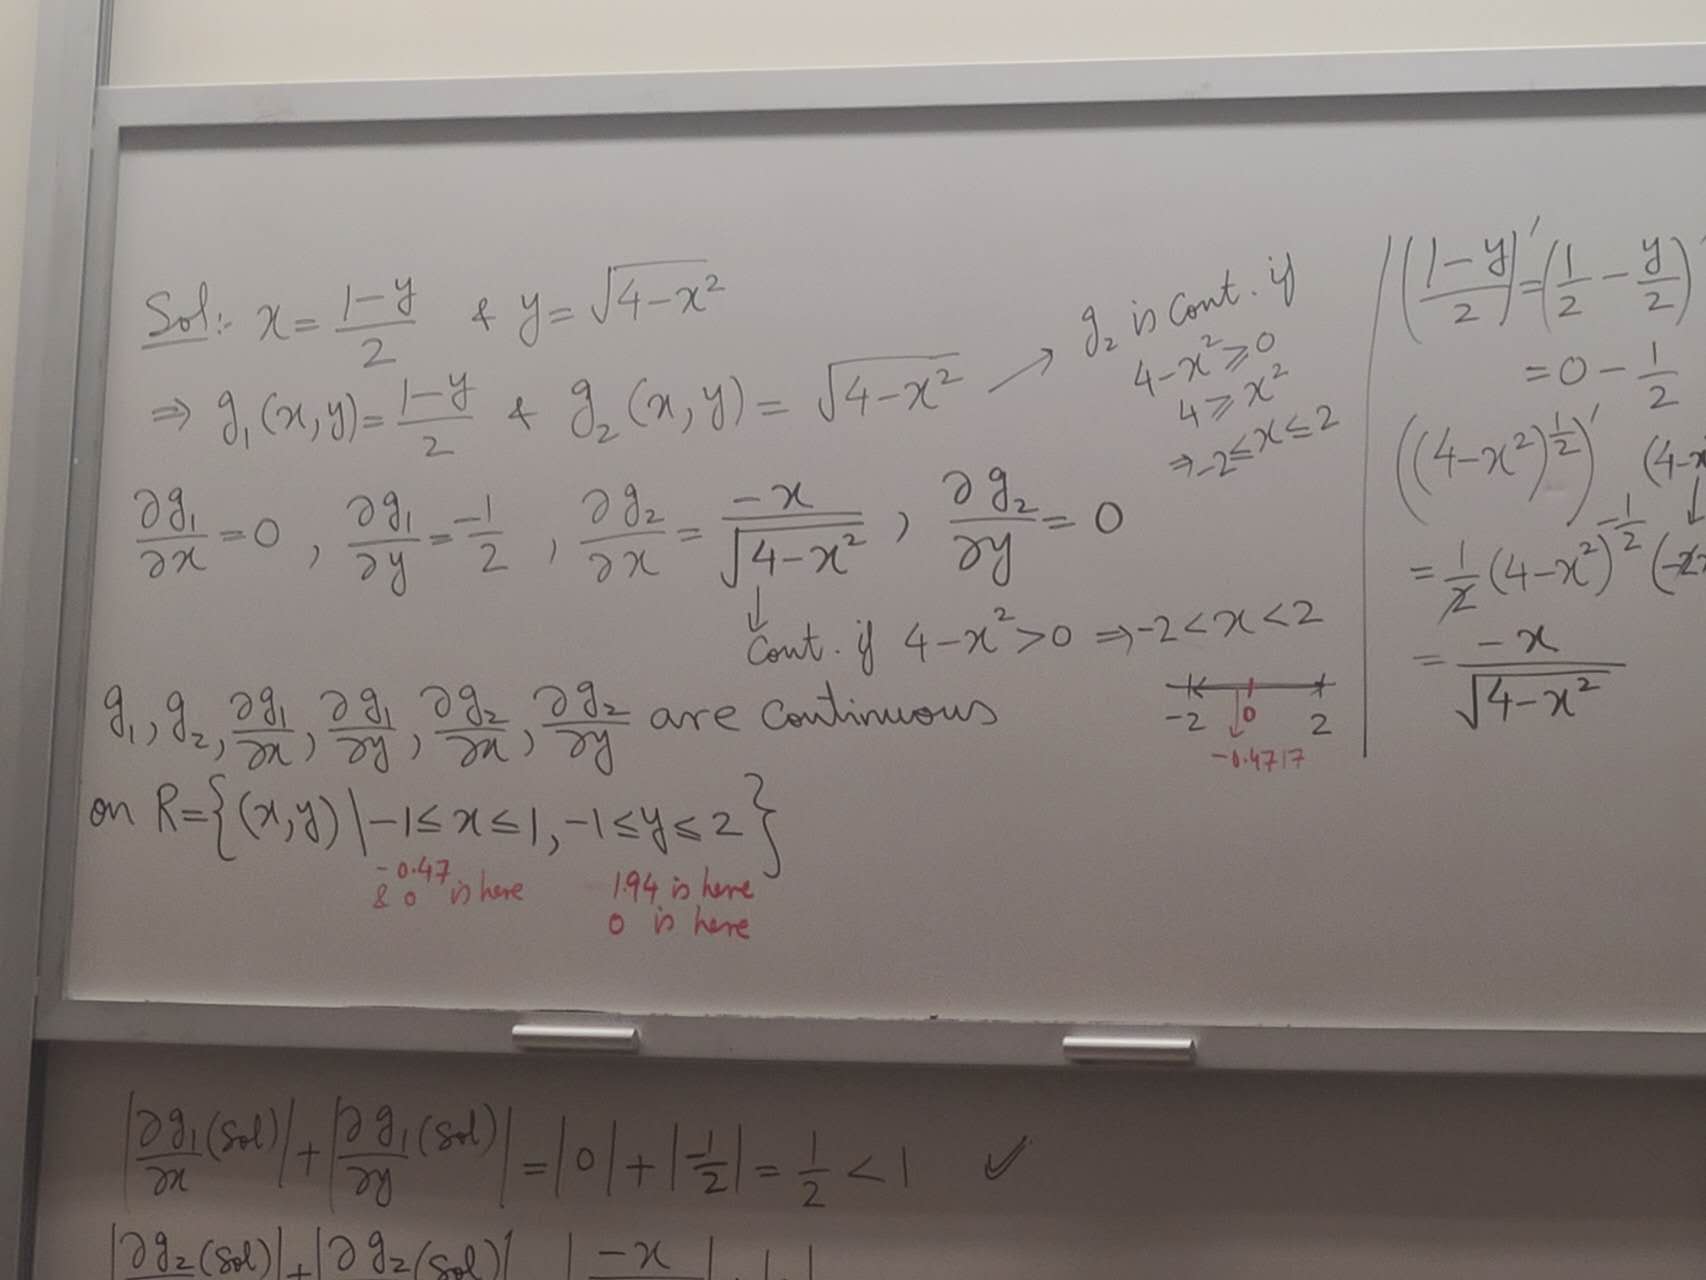 Sol:- x = (1-y)/2 & y = √(4-x²)
⇒ g₁(x,y) = (1-y)/2 & g₂(x,y) = √(4-x²) → g₂ is cont. if
4-x² ≥ 0
4 ≥ x²
⇒ -2 ≤ x ≤ 2
∂g₁/∂x = 0 , ∂g₁/∂y = -1/2 , ∂g₂/∂x = -x/√(4-x²) , ∂g₂/∂y = 0
↓
Cont. if 4-x² > 0 ⇒ -2 < x < 2
-2 0 2
-0.4717
g₁, g₂, ∂g₁/∂x, ∂g₁/∂y, ∂g₂/∂x, ∂g₂/∂y are continuous
on R = {(x,y) | -1 ≤ x ≤ 1, -1 ≤ y ≤ 2}
-0.47
& 0 is here
1.94 is here
0 is here
((1-y)/2)' = (1/2 - y/2)'
= 0 - 1/2
((4-x²)^(1/2))' (4-x
= 1/2 (4-x²)^(-1/2) (-2x
= -x/√(4-x²)
|∂g₁/∂x (Sol)| + |∂g₁/∂y (Sol)| = |0| + |-1/2| = 1/2 < 1 ✓
|∂g₂ (Sol)| + |∂g₂ (Sol)| |-x |